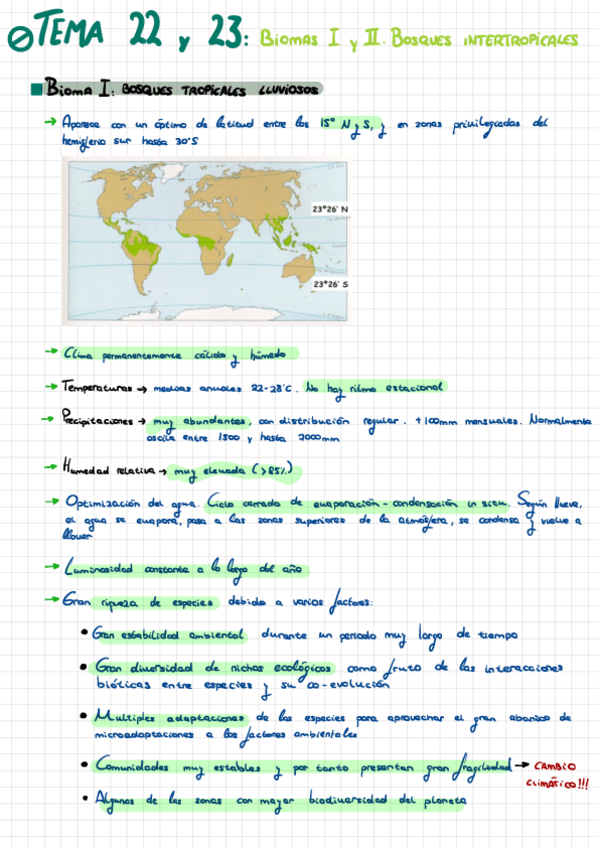 TEMA 22 y 23: BIOMAS I y II. BOSQUES INTERTROPICALES
BIOMA I: BOSQUES TROPICALES LLUVIOSOS
→ Aparece con un óptimo de latitud entre los 15° N y S, y en zonas privilegiadas del
hemisferio sur hasta 30°S
23°26' N
23°26' S
→ Clima permanentemente cálido y húmedo
→ Temperaturas → medias anuales 22-28°C. No hay ritmo estacional
→ Precipitaciones → muy abundantes, con distribución regular. +100mm mensuales. Normalmente
oscila entre 1500 y hasta 7000mm
→ Humedad relativa → muy elevada (>85%)
→ Optimización del agua. Ciclo cerrado de evaporación-condensación in situ. Según llueve,
el agua se evapora, pasa a las zonas superiores de la atmósfera, se condensa y vuelve a
llover
→ Luminosidad constante a lo largo del año
→ Gran riqueza de especies debido a varios factores:
• Gran estabilidad ambiental durante un periodo muy largo de tiempo
• Gran diversidad de nichos ecológicos como fruto de las interacciones
bióticas entre especies y su co-evolución
• Multiples adaptaciones de las especies para aprovechar el gran abanico de
microadaptaciones a los factores ambientales
• Comunidades muy estables y por tanto presentan gran fragilidad → CAMBIO
CLIMÁTICO!!!
• Algunas de las zonas con mayor biodiversidad del planeta